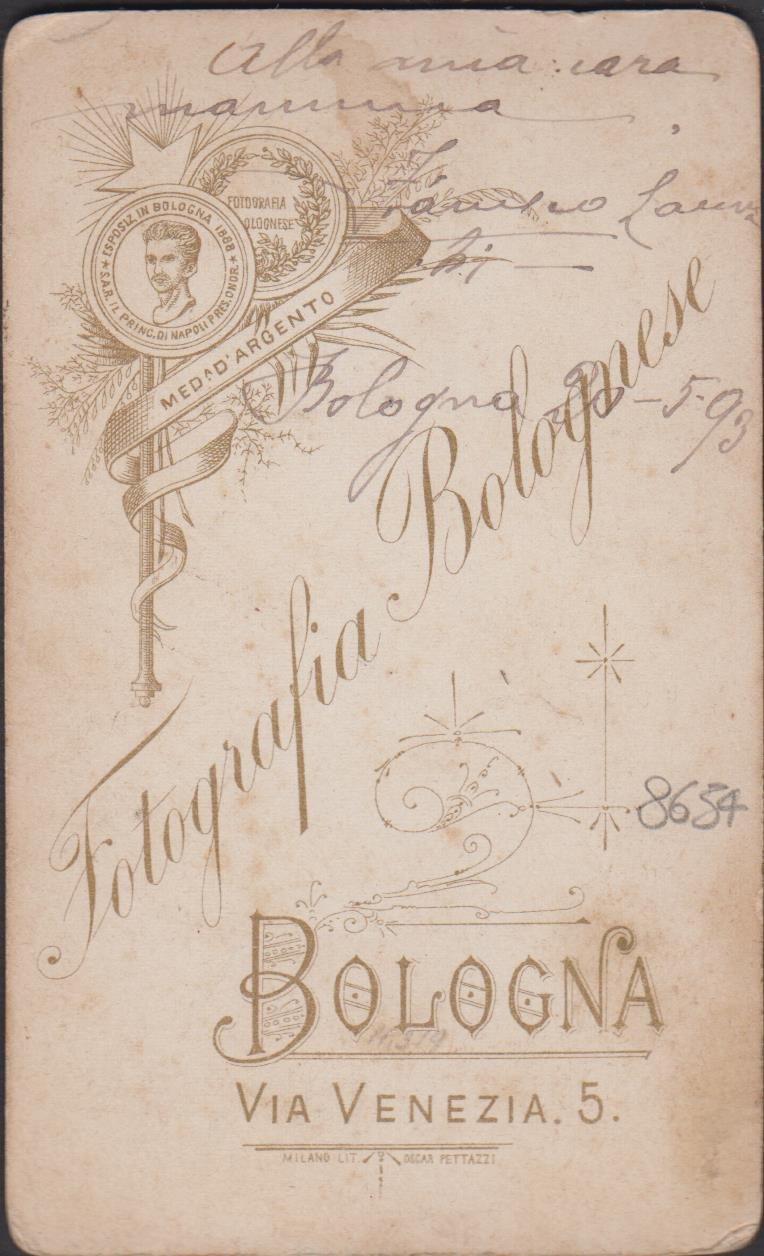 Alla mia cara
mammina
Bologna 20-5-93
ESPOSIZ. IN BOLOGNA 1888
S.A.R. IL PRINC. DI NAPOLI PRES. ONOR.
FOTOGRAFIA
BOLOGNESE
MEDA D'ARGENTO
Fotografia Bolognese
8654
BOLOGNA
VIA VENEZIA. 5.
MILANO LIT. OSCAR PETTAZZI